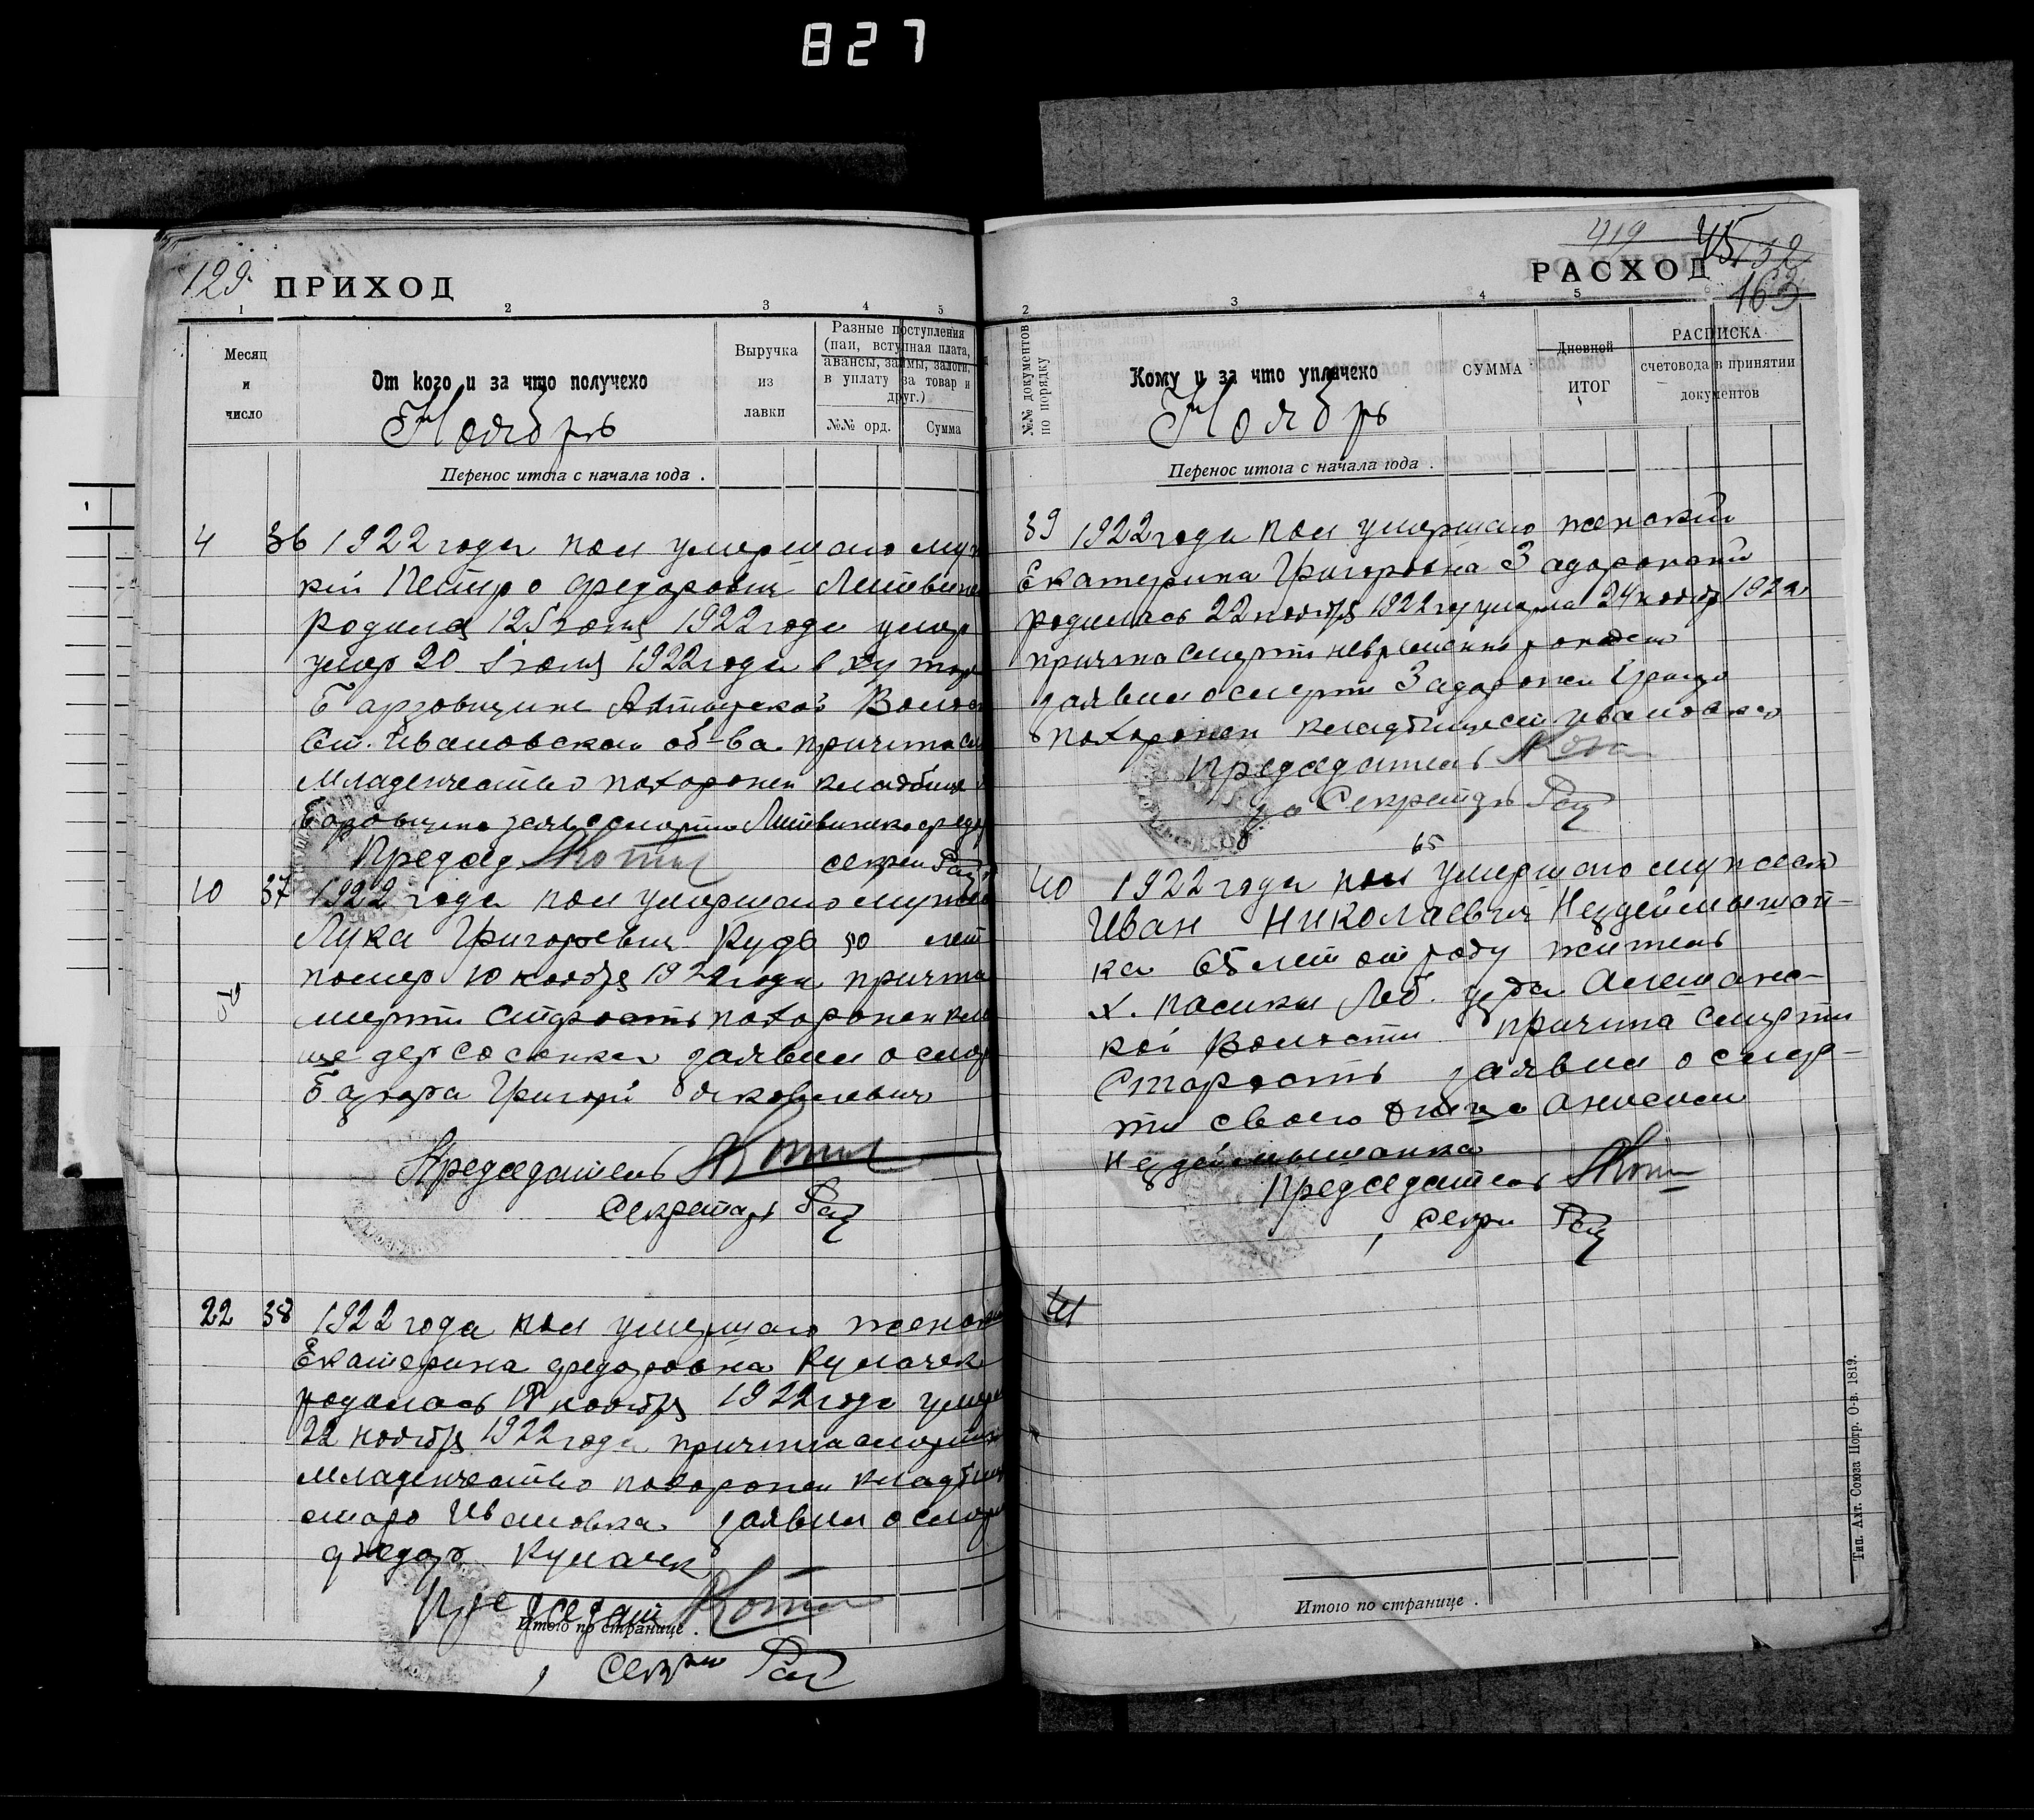 827
129
ПРИХОД
1 2 3 4 5
Месяц и число
От кого и за что получено
Выручка из лавки
Разные поступления (паи, вступная плата, авансы, займы, залоги, в уплату за товар и друг.)
№№ орд.
Сумма
Ноябрь
Перенос итога с начала года .
4 36 1922 года пол умершаго муж
кій Петро Федорович Литвин
родился 12 1922 года умер
умер 20 Июля 1922 года в хуторе
Барзовщине Волос
Ст. Ивановскаго об-ва причина см
Младенчество похоронен кладбище
Барзовщина заяв о смерти Литвиненко Федор
Председ
секрет Рац
10 37 1922 года пол умершаго мужск
Лука Григоревич Рудь 50 лет
помер 10 ноября 1922 года причина
мерти старость похоронен кла
ще дер Сосонка заявил о смер
Григорій
Председатель
Секретарь Рац
22 38 1922 года пол умершаго женский
Екатерина Федоровна Кумачек
родилась 18 ноября 1922 года умерла
22 ноября 1922 года причина смерти
младенчество похоронен кладбищ
старо Ивановка заявил о смерт
Федор Кумачек
Председат
Итого по странице .
Секрет Рац
419 45 132
163
РАСХОД
2 3 4 5 6
№№ документов по порядку
Кому и за что уплачено
СУММА
Дневной ИТОГ
РАСПИСКА счетовода в принятии документов
Ноябрь
Перенос итога с начала года .
39 1922 года пол умершаго женский
Екатерина Григоровна Задорожній
родилась 22 ноября 1922 году умерла 24 ноября 1922
причина смерти невременни рожден
заявил о смерти Задорожни Грицко
похоронен кладбище ст Ивановка
Председатель
Секретарь Рац
65
40 1922 года пол умершаго мужеск
Иван Николаевич Нездеймышап-
ка 65 лет от роду житель
х. Пасики Леб. уезда Алешанс-
кой Волости причина смерти
Старость заявил о смер-
ти своего отца Анисим
Нездеймышапка
Председатель
Секр Рац
41
Итого по странице .
Тип. Ахт. Союза Потр. О-в. 1819.